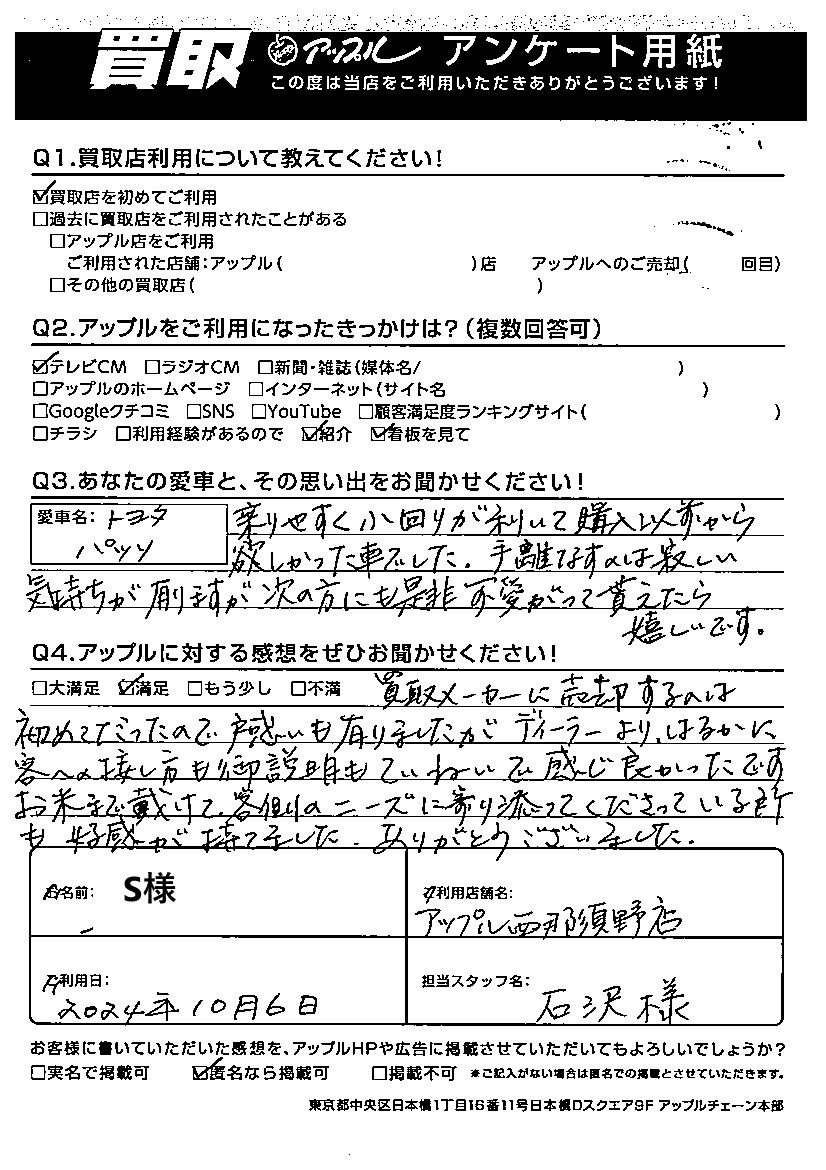 買取 アップル アンケート用紙
この度は当店をご利用いただきありがとうございます!
Q1.買取店利用について教えてください!
☑買取店を初めてご利用
□過去に買取店をご利用されたことがある
□アップル店をご利用
ご利用された店舗:アップル( )店 アップルへのご売却( 回目)
□その他の買取店( )
Q2.アップルをご利用になったきっかけは?(複数回答可)
☑テレビCM □ラジオCM □新聞・雑誌(媒体名/ )
□アップルのホームページ □インターネット(サイト名 )
□Googleクチコミ □SNS □YouTube □顧客満足度ランキングサイト( )
□チラシ □利用経験があるので ☑紹介 ☑看板を見て
Q3.あなたの愛車と、その思い出をお聞かせください!
愛車名:トヨタ
パッソ
乗りやすく小回りが利いて購入以前から
欲しかった車でした。手離なすのは寂しい
気持ちが有りますが次の方にも是非可愛がって貰えたら
嬉しいです。
Q4.アップルに対する感想をぜひお聞かせください!
□大満足 ☑満足 □もう少し □不満 買取メーカーに売却するのは
初めてだったので戸惑いも有りましたがディーラーより、はるかに
客への接し方も御説明もていねいで感じ良かったです
お米まで戴けて、客側のニーズに寄り添ってくださっている所
も好感が持てました。ありがとうございました。
お名前: S様
ご利用店舗名:
アップル西那須野店
ご利用日:
2024年10月6日
担当スタッフ名:
石沢様
お客様に書いていただいた感想を、アップルHPや広告に掲載させていただいてもよろしいでしょうか?
□実名で掲載可 ☑匿名なら掲載可 □掲載不可 ※ご記入がない場合は匿名での掲載とさせていただきます。
東京都中央区日本橋1丁目16番11号日本橋Dスクエア9F アップルチェーン本部